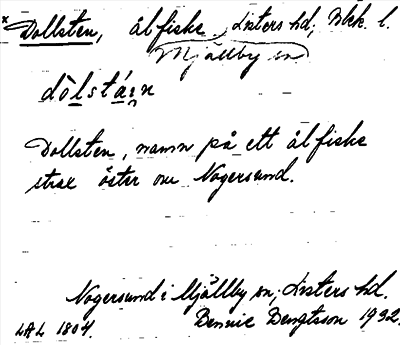 * Dollsten, ålfiske, Listers hd; Blek. l.
Mjällby sn
dōlstáin
Dollsten, namn på ett ålfiske
strax öster om Nogersund.
Nogersund i Mjällby sn, Listers hd.
LAL 1804. Bennie Bengtsson 1932.